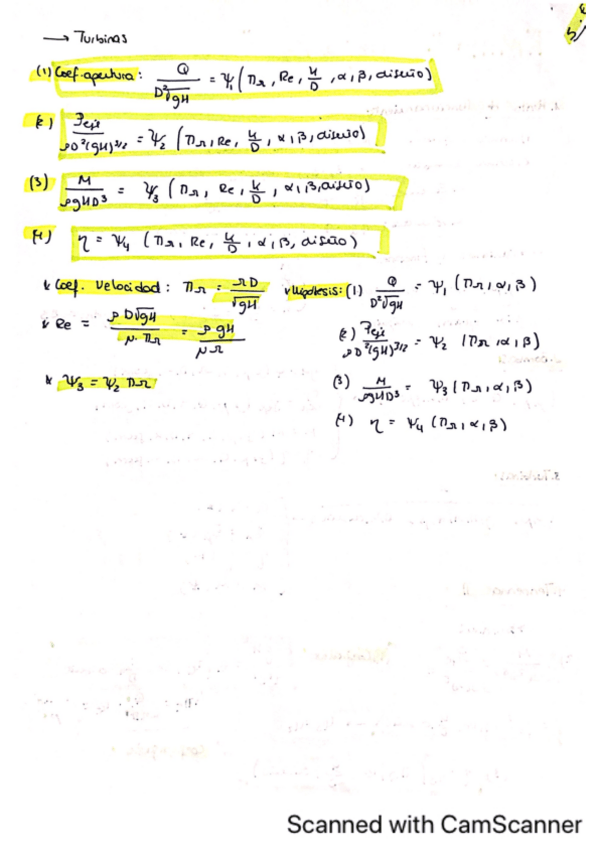 → Turbinas
(1) Coef. apertura: Q / D²√gH = Ψ₁ (Πn, Re, k/D, α, β, diseño)
(2) Peje / ρD²(gH)^3/2 = Ψ₂ (Πn, Re, k/D, α, β, diseño)
(3) M / ρgHD³ = Ψ₃ (Πn, Re, k/D, α, β, diseño)
(4) η = Ψ₄ (Πn, Re, k/D, α, β, diseño)
* Coef. Velocidad: Πn = nD / √gH
* Re = ρD√gH / μ·Πn = ρgH / μn
* Ψ₃ = Ψ₂ Πn
* Hipótesis: (1) Q / D²√gH = Ψ₁ (Πn, α, β)
(2) Peje / ρD²(gH)^3/2 = Ψ₂ (Πn, α, β)
(3) M / ρgHD³ = Ψ₃ (Πn, α, β)
(4) η = Ψ₄ (Πn, α, β)
Scanned with CamScanner